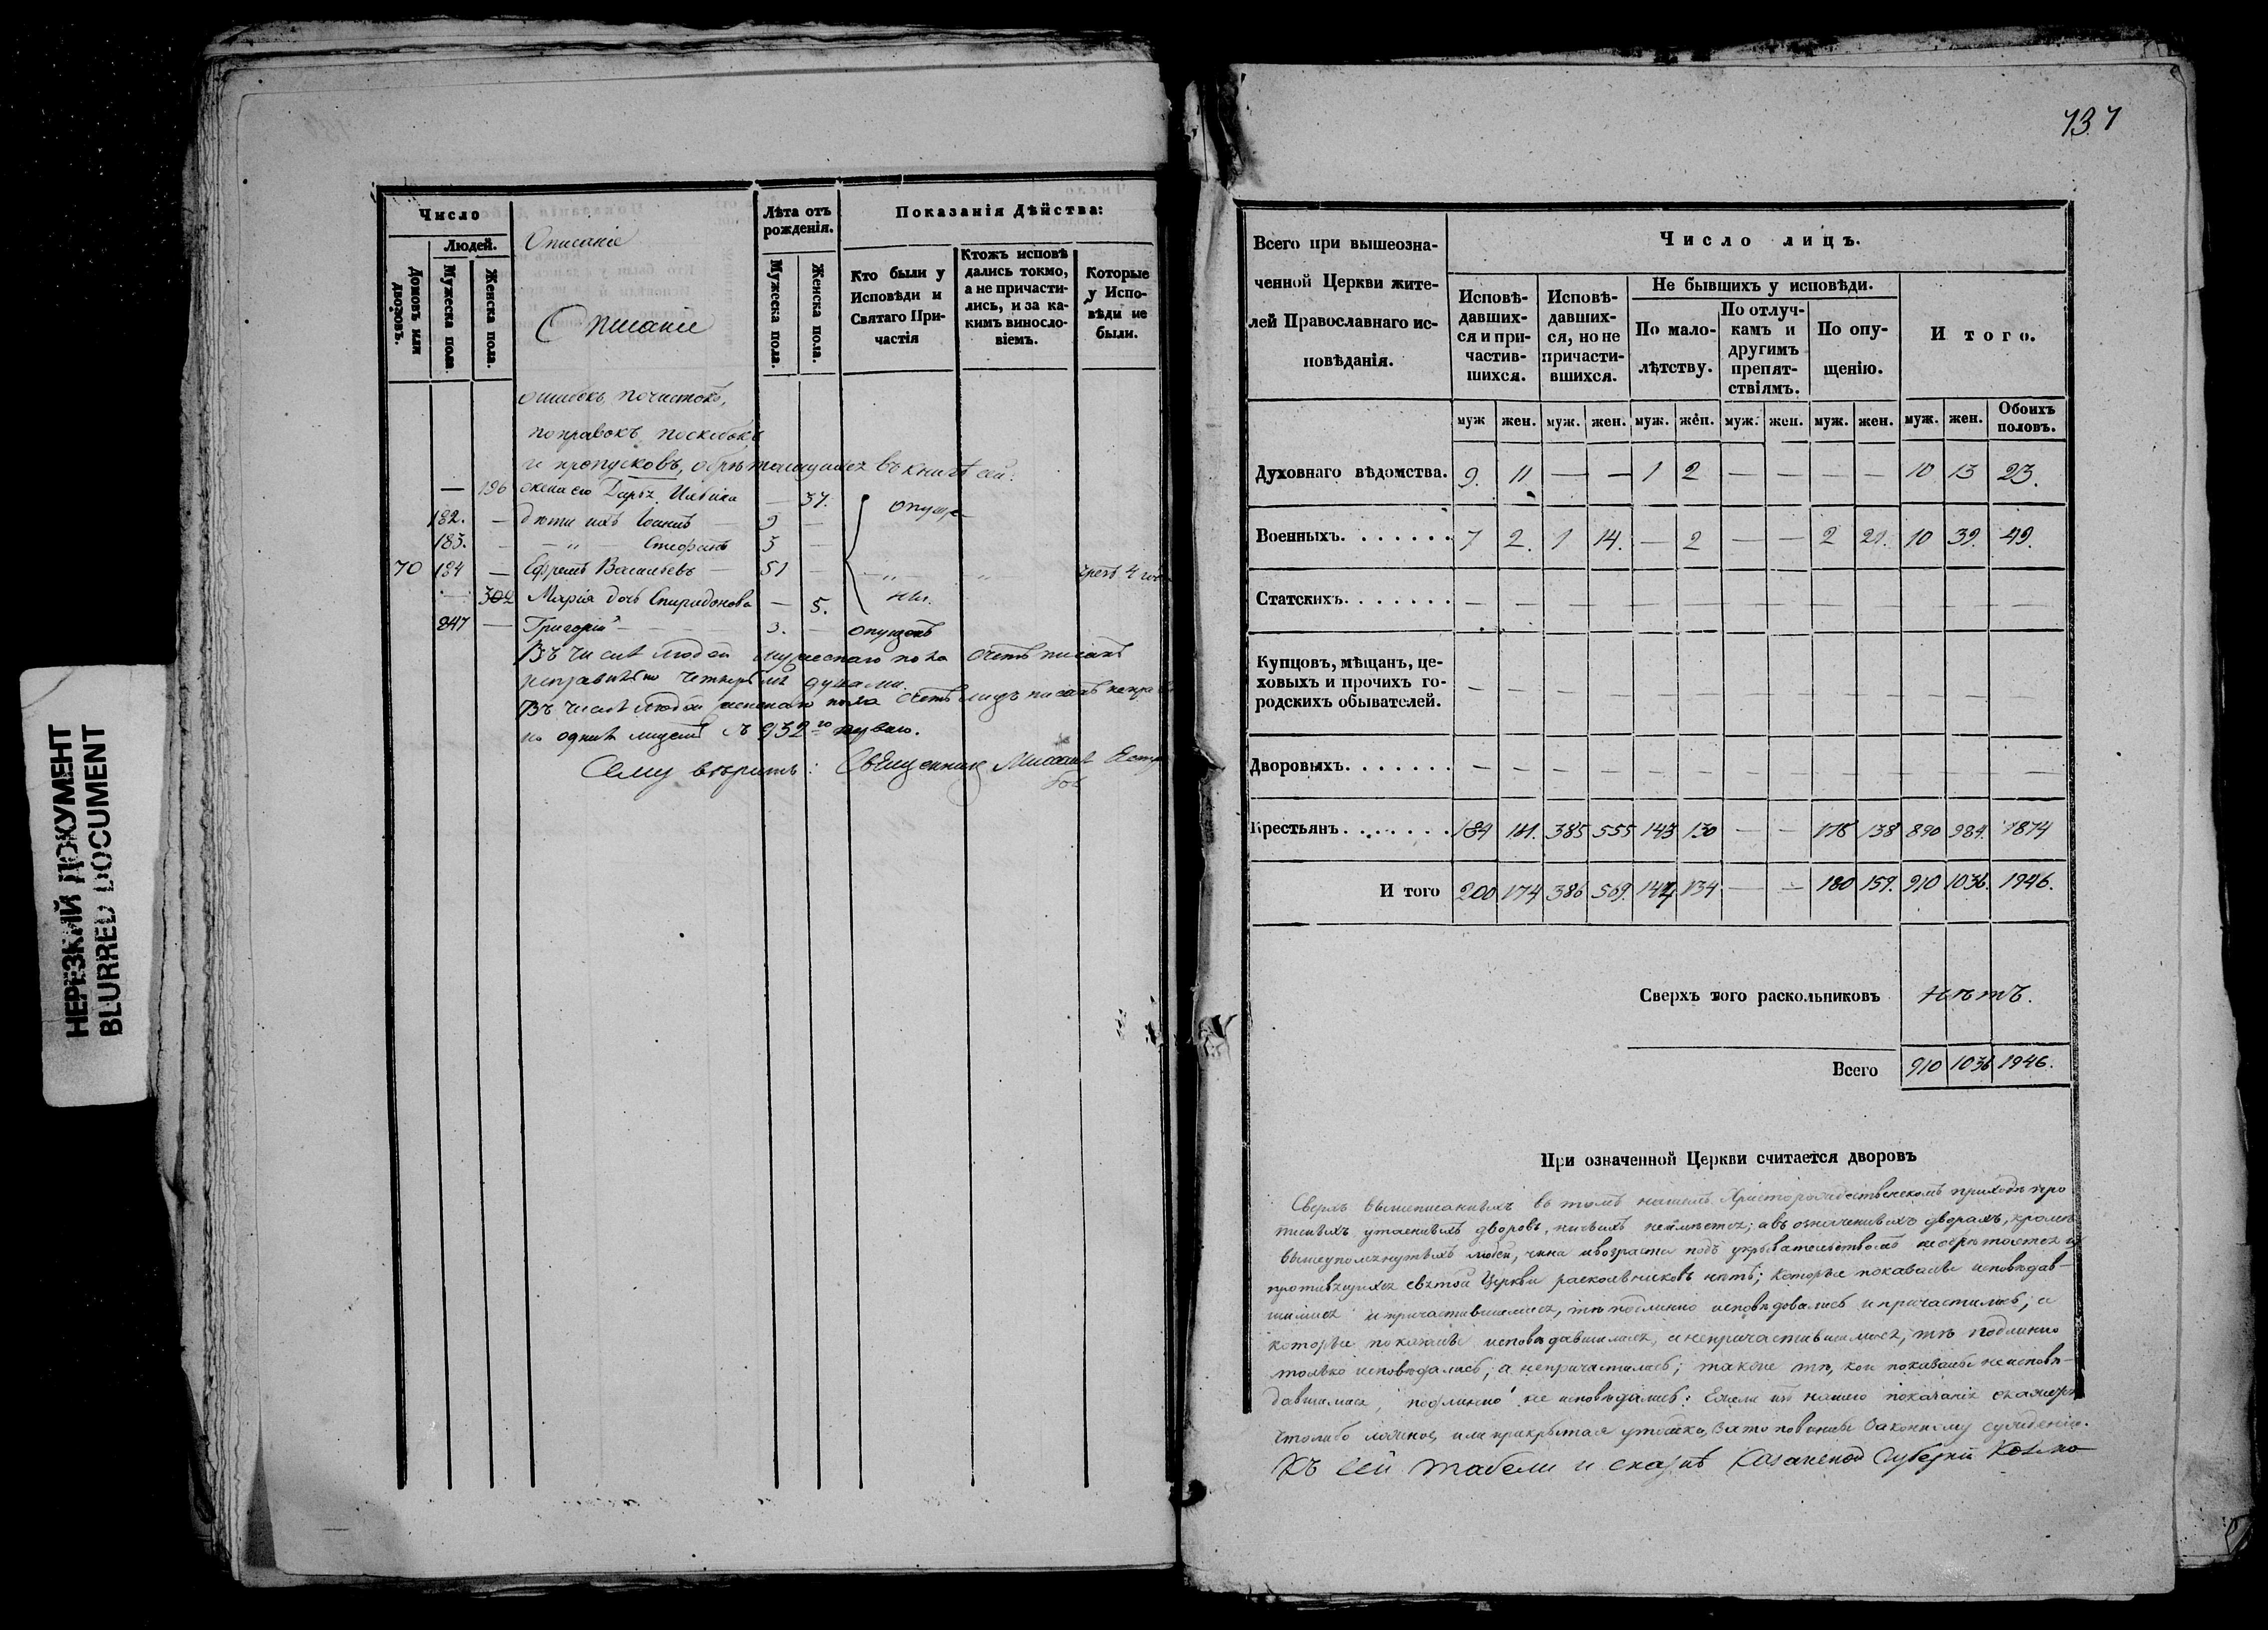 НЕРЕЗКИЙ ДОКУМЕНТ
BLURRED DOCUMENT
Число
Людей.
Домовъ или дворовъ.
Мужеска пола.
Женска пола.
Описаніе
Описаніе
Лѣта отъ рожденія.
Мужеска пола.
Женска пола.
Показанія Дѣйства:
Кто были у Исповѣди и Святаго Причастія
Ктожъ исповѣдались токмо, а не причастились, и за какимъ винословіемъ.
Которые у Исповѣди не были.
ошибокъ, почистокъ,
поправокъ, поскобокъ
и пропусковъ, обрѣтающихся въ книгѣ сей:
— 196 жена его Дарья Ильина — 37.
182. — дѣти ихъ Іоаннъ — 9 —
183. — „ Стефанъ 3 —
70 184 — Ефремъ Васильевъ — 51 — „ „ чрезъ 4
302 Марія дочь Спиридонова — 5.
847 — Григорій — 3. — опущенъ
Въ числѣ людей мужескаго пола счетъ писанъ
душами.
Въ числѣ людей женскаго пола счетъ лицъ писанъ
съ 932го
Священникъ
737
Всего при вышеозначенной Церкви жителей Православнаго исповѣданія.
Число лицъ.
Исповѣдавшихся и причастившихся.
Исповѣдавшихся, но не причастившихся.
Не бывшихъ у исповѣди.
По малолѣтству.
По отлучкамъ и другимъ препятствіямъ.
По опущенію.
И того.
муж жен. муж. жен. муж. жен. муж. жен. муж. жен. муж. жен. Обоихъ половъ.
Духовнаго вѣдомства. 9. 11 — — 1 2 — — — — 10 13 23.
Военныхъ. 7 2. 1 14. — 2 — — 2 21. 10 39. 49.
Статскихъ. — — — — — — — — — — — — —
Купцовъ, мѣщанъ, цеховыхъ и прочихъ городскихъ обывателей. — — — — — — — — — — — — —
Дворовыхъ. — — — — — — — — — — — — —
Крестьянъ. 184 161. 385 555 143 130 — — 178 138 890 984. 1874
И того 200 174 386 569. 144 134 — — 180 159. 910 1036. 1946.
Сверхъ того раскольниковъ нѣтъ.
Всего 910 1036 1946.
При означенной Церкви считается дворовъ
Сверхъ вышеписанныхъ въ томъ нашемъ Христорождественскомъ приходѣ про
утаенныхъ дворовъ, никакихъ неимѣется; а въ означенныхъ дворахъ, кромѣ
вышеупомянутыхъ людей, чина и возраста подъ укрывательствомъ необрѣтается и
противящихся святой Церкви раскольниковъ нѣтъ; которые показаны исповѣдав-
шимися и причастившимися, тѣ подлинно исповѣдовались и причастились; а
которые показаны исповѣдавшимися, а непричастившимися, тѣ подлинно
только исповѣдались, а непричастились; также тѣ, кои показаны неисповѣ-
давшимися, подлинно не исповѣдались: Ежели въ нашемъ показаніи окажется
что либо ложное, или прикрытая утайка, за то повинны законному сужденію.
Къ сей табели и сказкѣ Казанской Губерніи